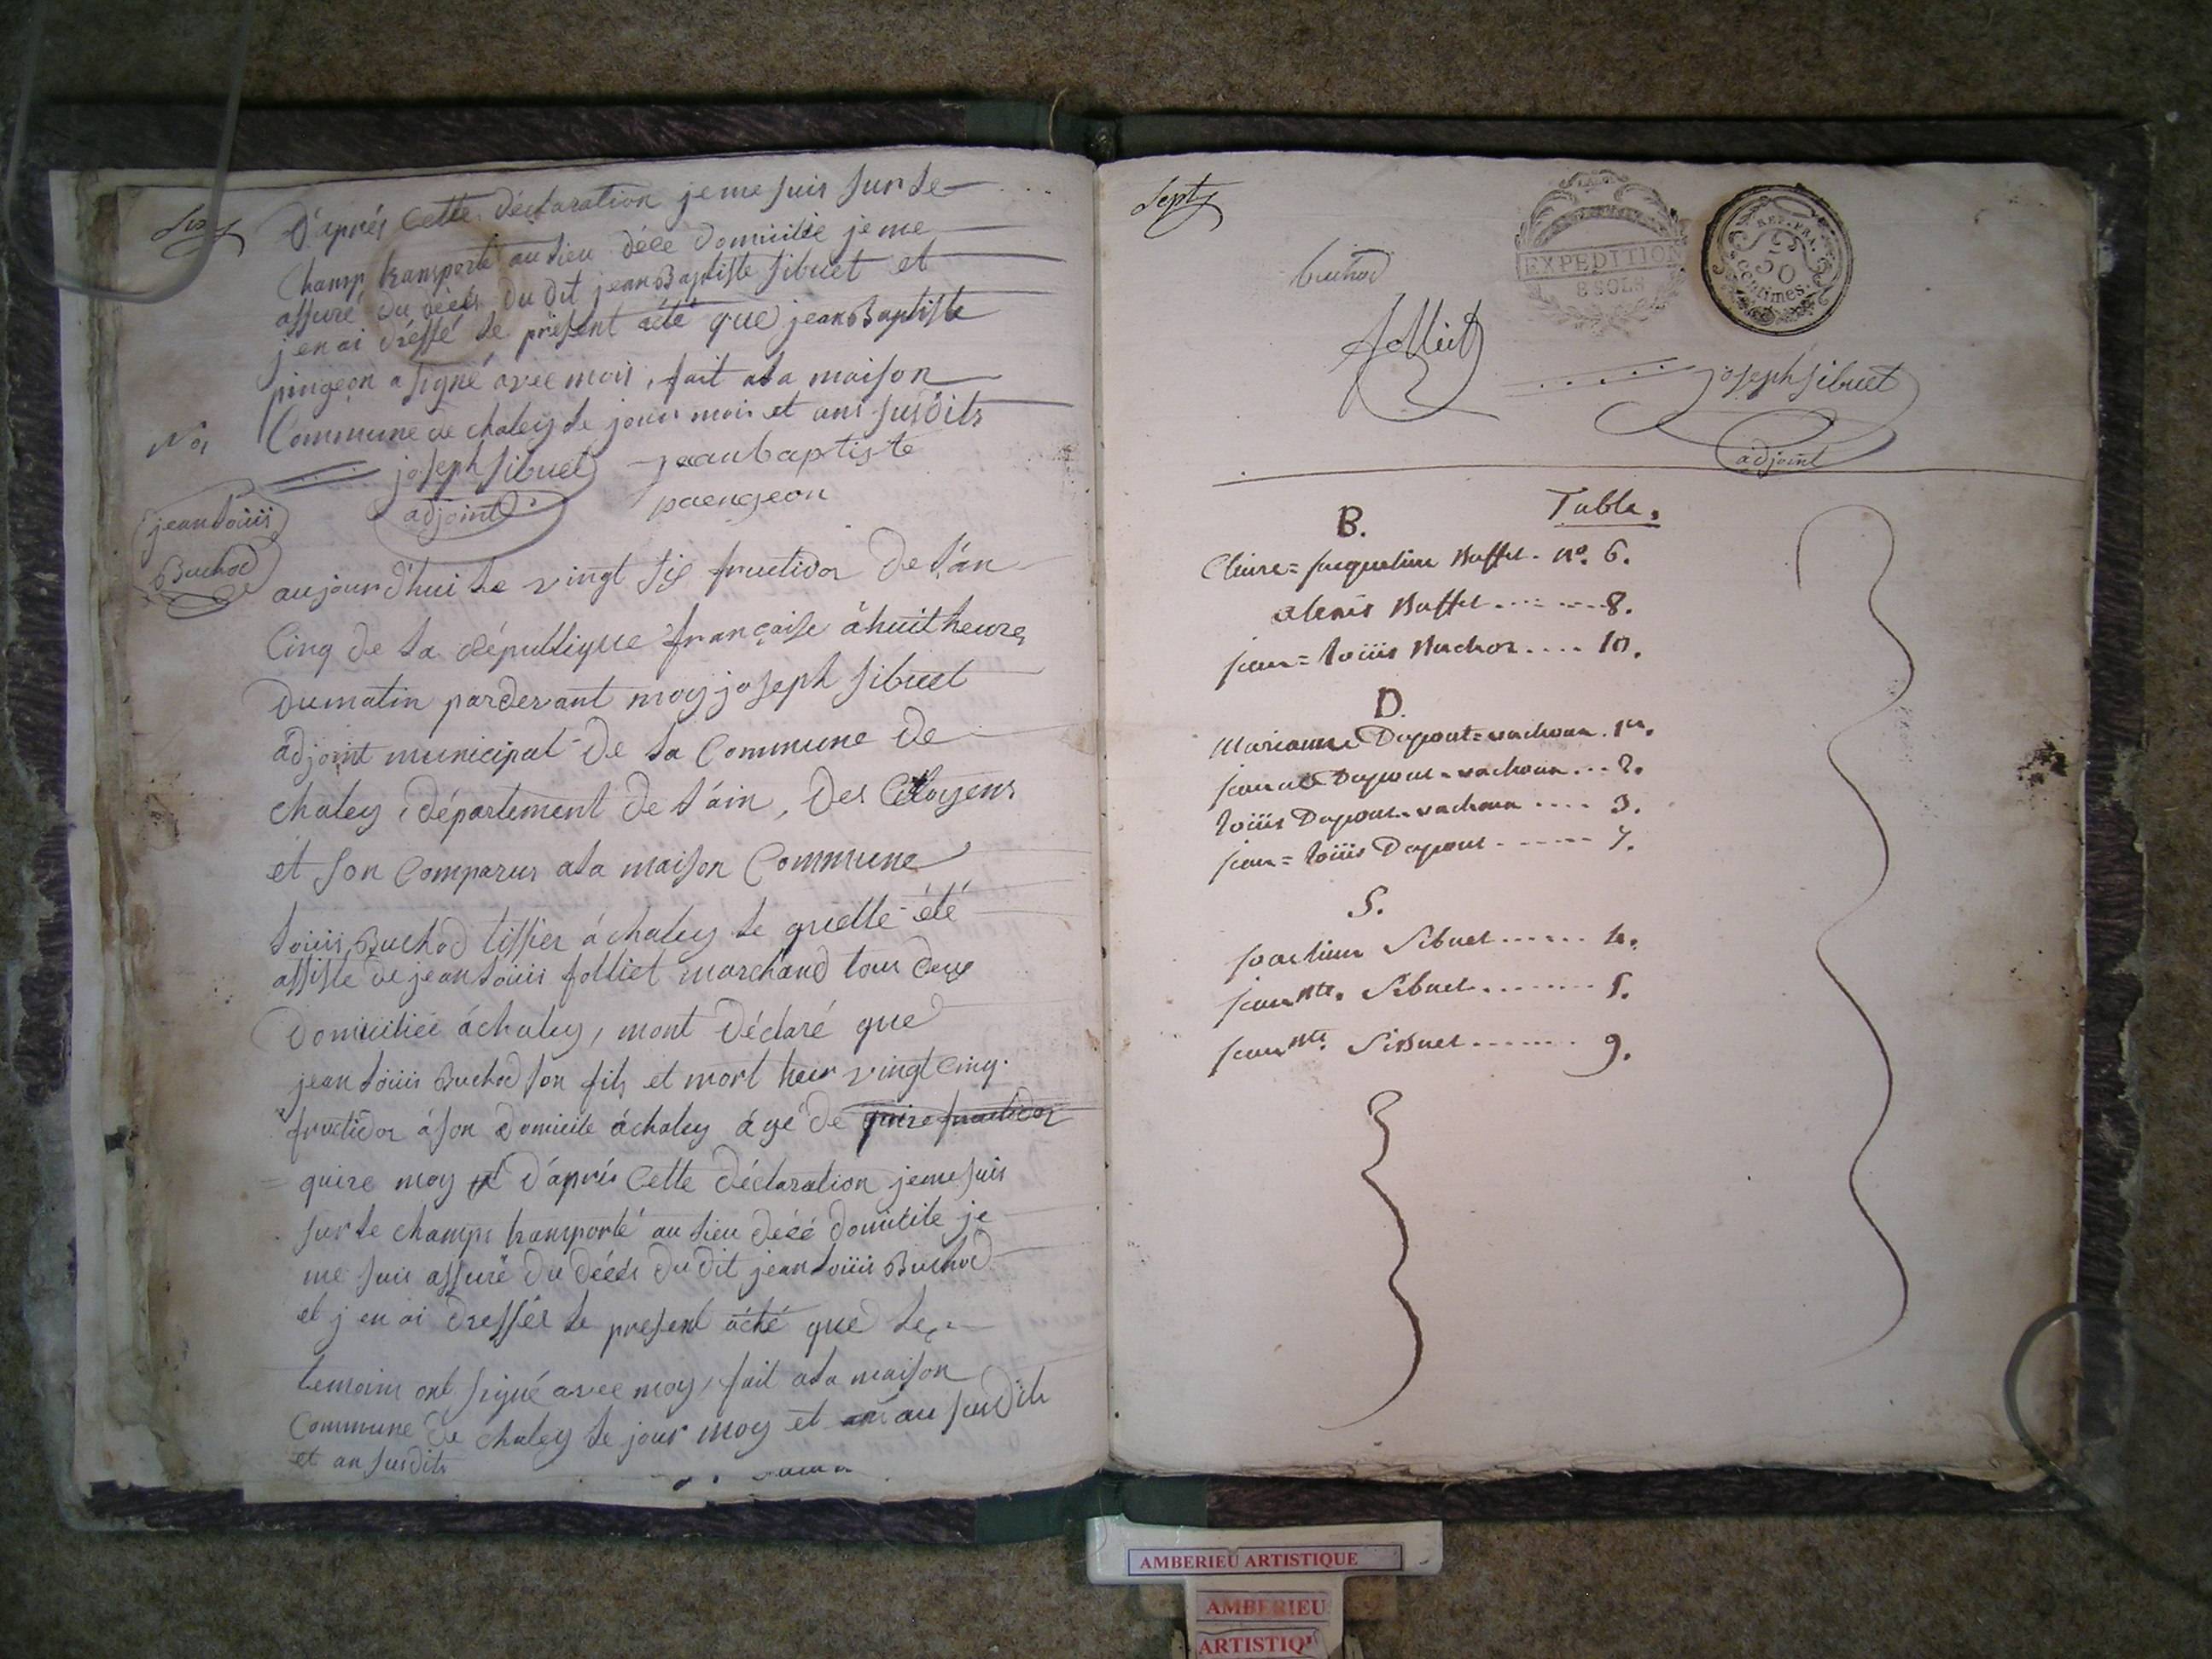 D'aprés Cette déclaration je me suis sur le
Champ transporté au lieu déce domicilié je me
assuré du décés du dit jean Baptiste sibuet et
j en ai dréssé le présent acté que jean Baptiste
pingeon a signé avec mois, fait ala maison
Commune de chaley le jour mois et ans susdits
joseph sibuet jeanbaptiste
adjoint paengeon
jean Louis
Buchod
aujourd'hui le vingt six fructidor de l'an
Cinq de la république française à huit heures
du matin pardevant moy joseph sibuet
adjoint municipal de la Commune de
chaley, département de l'ain, des Citoyens
et son Comparus ala maison Commune
Louis Buchod tissier á chaley le quelle été
assisté de jean Louis folliet marchand tous deux
domiciliée á chaley, mont déclaré que
jean Louis Buchod son fils et mort hier vingt Cinq
fructidor á son domicile á chaley ágé de quire fructidor
quire moy et d'aprés Cette déclaration je me suis
sur le champs transporté au lieu décé domicile je
me suis assuré du décés du dit jean Louis Buchod
et j en ai dressér le present acté que les
temoins ont signé avec moy, fait ala maison
Commune de chaley le jour moy et an susdits
et an susdits
Sept
buchod
folliet
EXPEDITION
8 SOLS
REP. FRA.
50
centimes.
joseph sibuet
adjoint
Table.
B.
Claire=Jacqueline Buffet. n.º 6.
alexis Buffet ....... 8.
jean=Louis Buchod .... 10.
D.
Marianne Dupont=vachoux. 1er.
Dupont-vachoux ... 2.
Louis Dupont-vachoux .... 3.
jean=Louis Dupont ...... 7.
S.
Sibuet ...... 4.
jean Bte. Sibuet ........ 5.
jean Bte Sibuet ....... 9.
AMBERIEU ARTISTIQUE
AMBERIEU
ARTISTIQU